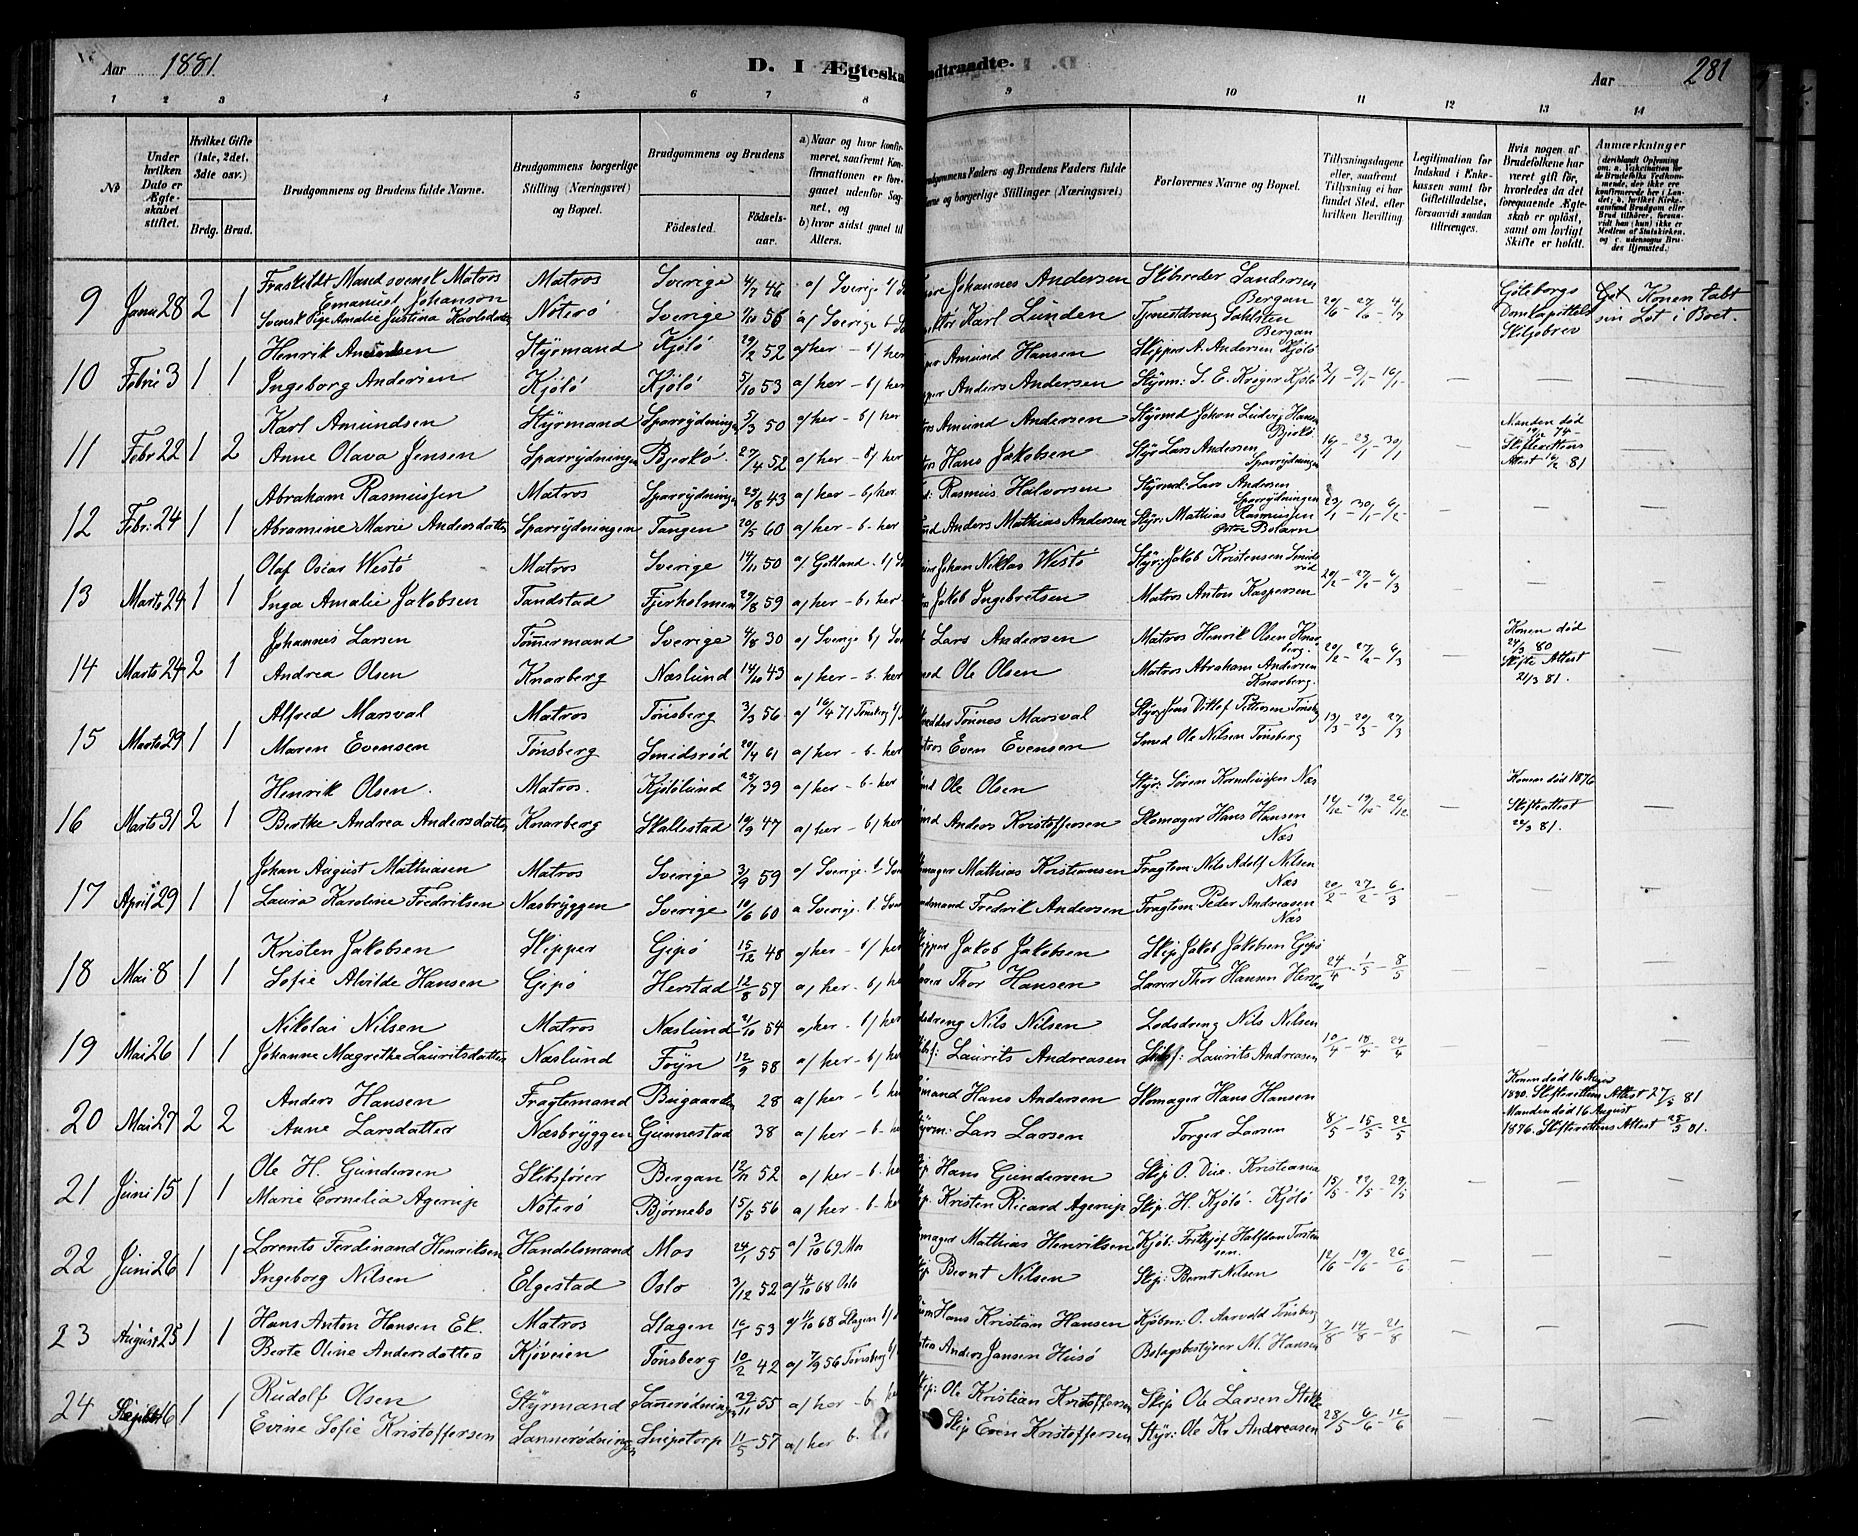 Aar 1881.
D. I Ægteska
ndtraadte.
Aar
281
1 2 3 4 5 6 7 8 9 10 11 12 13 14
No
Under hvilken Dato er Ægteskabet stiftet.
Hvilket Gifte (1ste, 2det, 3die osv.)
Brdg. Brud.
Brudgommens og Brudens fulde Navne.
Brudgommens borgerlige Stilling (Næringsvei) og Bopæl.
Brudgommens og Brudens
Födested.
Födselsaar.
a) Naar og hvor konfirmeret, saafremt Konfirmationen er foregaaet udenfor Sognet, og
b) hvor sidst gaaet til Alters.
Brudgommens Faders og Brudens Faders fulde
og borgerlige Stillinger (Næringsvei)
Forlovernes Navne og Bopæl.
Tillysningsdagene eller, saafremt Tillysning ei har fundet Sted, efter hvilken Bevilling.
Legitimation for Indskud i Enkekassen samt for Giftetilladelse, forsaavidt saadan tiltrænges.
Hvis nogen af Brudefolkene har været gift för, hvorledes da det foregaaende Ægteskab er oplöst, samt om lovligt Skifte er holdt.
Anmærkninger
9 Janu 28 2 1 Fraskeldt Mand svensk Matros Matros Sverige 4/7 46 a/ Sverige Johannes Andersen Skibreder Sandersen
Emanuel Johanson Bergan 20/6 - 27/6 - 4/7 Göteborgs
Svensk Pige Amalie Justina Karlsdatter Nöterö Sverige 7/10 56 a/ Sverige Karl Lunden Tjenestdreng Dahlsten Bergan Domkapittels Skiljebrev
Konen tabt sin Lot i Boet.
10 Febri 3 1 1 Henrik Amundsen Styrmand Kjölö 29/2 52 a/ her - b/ her Amund Hansen Skipper A. Andersen Kjölö
Ingeborg Andersen Kjölö Kjölö 5/10 53 a/ her - b/ her Anders Andersen Styrm: S. E. Kröger Kjölö 2/1 - 9/1 - 16/1 — — —
11 Febr 22 1 2 Karl Amundsen Styrmand Sparrydningen 5/3 50 a/ her - b/ her Amund Andersen Styrmd Johan Ludvig Hansen Bjerkö
Anne Olava Jensen Sparrydningen Bjerkö 27/4 52 a/ her - b/ her Hans Jakobsen Styr Lars Andersen Sparrydningen 16/1 - 23/1 - 30/1 — Manden död 74 - Skifterettens Attest 16/2 81 —
12 Febr: 24 1 1 Abraham Rasmussen Matros Sparrydningen 25/8 43 a/ her - b/ her Rasmus Halvorsen Styrmd: Lars Andersen Sparrydningen
Abramine Marie Andersdatter Sparrydningen Tangen 20/5 60 a/ her - b. her Anders Mathias Andersen Styr: Mathias Rasmussen Östre Bolærn 23/1 - 30/1 - 6/2 — — —
13 Marts 24 1 1 Olaf Oscar Westö Matros Sverige 14/11 50 a/ Gotland. Johan Niklas Westö Styr: Jakob Kristensen Smidsröd
Inga Amalie Jakobsen Tandstad Fjerholmen 29/8 59 a/ her - b. her Jakob Ingebretsen Matros Anton Kaspersen 20/2 - 27/2 - 6/3 — — —
14 Marts 24 2 1 Johannes Larsen Tömmermand Sverige 4/8 30 a/ Sverige Lars Andersen Matros Henrik Olsen Knarberg
Andrea Olsen Knarberg Næslund 14/10 43 a/ her - b. her Ole Olsen Matros Abraham Andersen Knarberg. 20/2 - 27/2 - 6/3 — Konen död 24/3 80 Skifte Attest 21/3 81. —
15 Marts 29 1 1 Alfred Marsval Matros Tönsberg 3/3 56 a/ 16/4 71 Tönsberg Tönnes Marsval Styr: Jens Ditlef Petersen Tönsberg
Maren Evensen Tönsberg Smidsröd 20/4 61 a/ her - b - her Even Evensen Smed Ole Nilsen Tönsberg 13/3 - 20/3 - 27/3 — — —
16 Marts 31 2 1 Henrik Olsen. Matros. Kjölölund 25/7 39 a/ her - b. her Ole Olsen Styr: Sören Korneliussen Næs
Berthe Andrea Andersdatter Knarberg Skallestad 19/9 47 a/ her - b/ her Anders Kristoffersen Skomager Hans Hansen Næs 12/12 - 19/12 - 26/12 — Konen död 1876 Skifteattest 22/3 81. —
17 April 29 1 1 Johan August Mathiasen Matros Sverige 3/9 59 a/ Sverige Mathias Kristiansen Fragtem: Nils Adolf Nilsen Næs
Laura Karoline Fredriksen Næsbryggen Sverige 10/6 60 a Sverige. Fredrik Andersen Fragtem: Peder Andreasen Næs 20/2 - 27/2 - 6/3 — — —
18 Mai 8 1 1 Kristen Jakobsen Skipper Gipö 15/12 48 a/ her - b/ her Jakob Jakobsen Skip Jakob Jakobsen Gipö
Sofie Alvilde Hansen Gipö Herstad 12/8 57 a/ her - b/ her Thor Hansen Lærer Thor Hansen Herstad 24/4 - 1/5 - 8/5 — — —
19 Mai 26 1 1 Nikolai Nilsen Matros Næslund 21/10 54 a/ her - b/ her Nils Nilsen Lodsdreng Nils Nilsen
Johanne Magrethe Lauritsdatter Næslund Föyn 12/9 58 a/ her - b/ her Laurits Andreasen Skibsf: Laurits Andreasen 10/4 - 18/4 - 24/4 — — —
20 Mai 27 2 2 Anders Hansen Fragtemand Buigaarden 28 a/ her - b her Hans Andersen Skomager Hans Hansen
Anne Larsdatter Næsbryggen Gunnestad 38 a/ her - b. her Styrm: Lars Larsen Torger Larsen 8/5 - 15/5 - 22/5 — Konen död 16 1880. Skifterettens Attest 27/5 81
Manden död 16 August 1876. Skifterettens Attest 25/5 81.
21 Juni 15 1 1 Ole H. Gundersen Skibsförer Bergan 12/11 52 a/ her - b. her Hans Gundersen Skip O. Due. Kristiania
Marie Cornelia Agerup Nöterö Björnebo 15/5 56 a/ her - b. her Kristen Ricard Agerup Skip. H. Kjölö. Kjölö 15/5 - 22/5 - 29/5 — — —
22 Juni 26 1 1 Lorents Ferdinand Henriksen Handelsmand Mos 24/1 55 a/ 3/10 69 Mos Mathias Henriksen Kjöb: Fritjof Halfdan Torstensen.
Ingeborg Nilsen Elgestad Oslo 3/12 52 a/ 4/10 68 Oslo Bernt Nilsen Skip: Bernt Nilsen 12/6 - 19/6 - 26/6 — — —
23 August 25 1 1 Hans Anton Hansen Ek. Matros Slagen 16/1 53 a/ 4/10 68 Slagen Hans Kristian Hansen Kjöbm: O. Aarvold Tönsberg
Berte Oline Andersdatter Kjöveien Tönsberg 10/2 42 a/ 7/9 56 Tönsberg Anders Jansen Husö Bolagsbestyrer M. Hansen 7/8 - 14/8 - 21/8 — — —
24 16 1 1 Rudolf Olsen Styrmand Sannerödningen 29/11 55 a/ her - b. her Skip: Ole Kristian Kristoffersen Skip Ole Larsen
Evine Sofie Kristoffersen Sannerödningen Snipetorp 11/5 57 a/ her b. Skip Even Kristoffersen Styr: Ole Kr. Andreasen 28/5 - 6/6 - 12/6 — — —